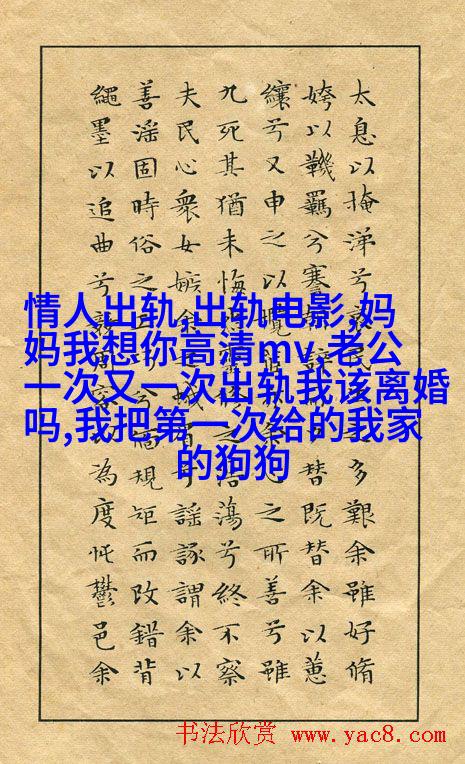 太息以掩涕兮哀民之多艱余雖好脩
姱以鞿羈兮謇朝替既替余以蕙
纕兮又申之以攬之所善兮雖
九死其猶未悔之浩蕩兮終不察
夫民心衆女嫉余蛾眉兮謠諑謂余以
善淫固時俗之兮規矩而改錯背
繩墨以追曲兮為度忳鬱邑余
情人出轨,出轨电影,妈
妈我想你高清mv,老公
一次又一次出轨我该离婚
吗,我把第一次给的我家
的狗狗
书法欣赏 www.yac8.com